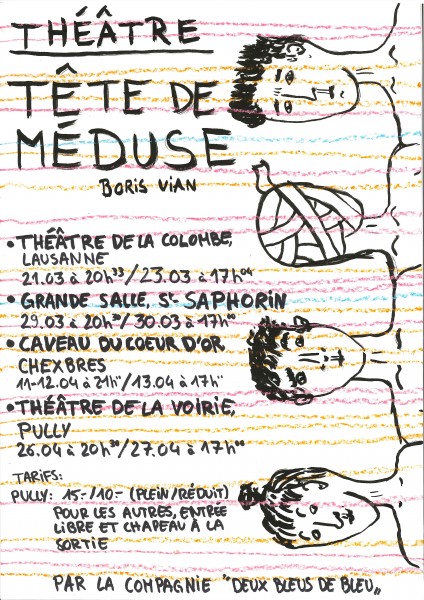 THÉÂTRE
TÊTE DE
MÉDUSE
BORIS VIAN
• THÉÂTRE DE LA COLOMBE,
LAUSANNE
21.03 à 20h33/23.03 à 17h04
• GRANDE SALLE, St-SAPHORIN
29.03 à 20h30/30.03 à 17h00
• CAVEAU DU COEUR D'OR,
CHEXBRES
11-12.04 à 21h/13.04 à 17h
• THÉÂTRE DE LA VOIRIE,
PULLY
26.04 à 20h30/27.04 à 17h00
TARIFS:
PULLY: 15.-/10.- (PLEIN/RÉDUIT)
POUR LES AUTRES, ENTRÉE
LIBRE ET CHAPEAU À LA
SORTIE
PAR LA COMPAGNIE "DEUX BLEUS DE BLEU„